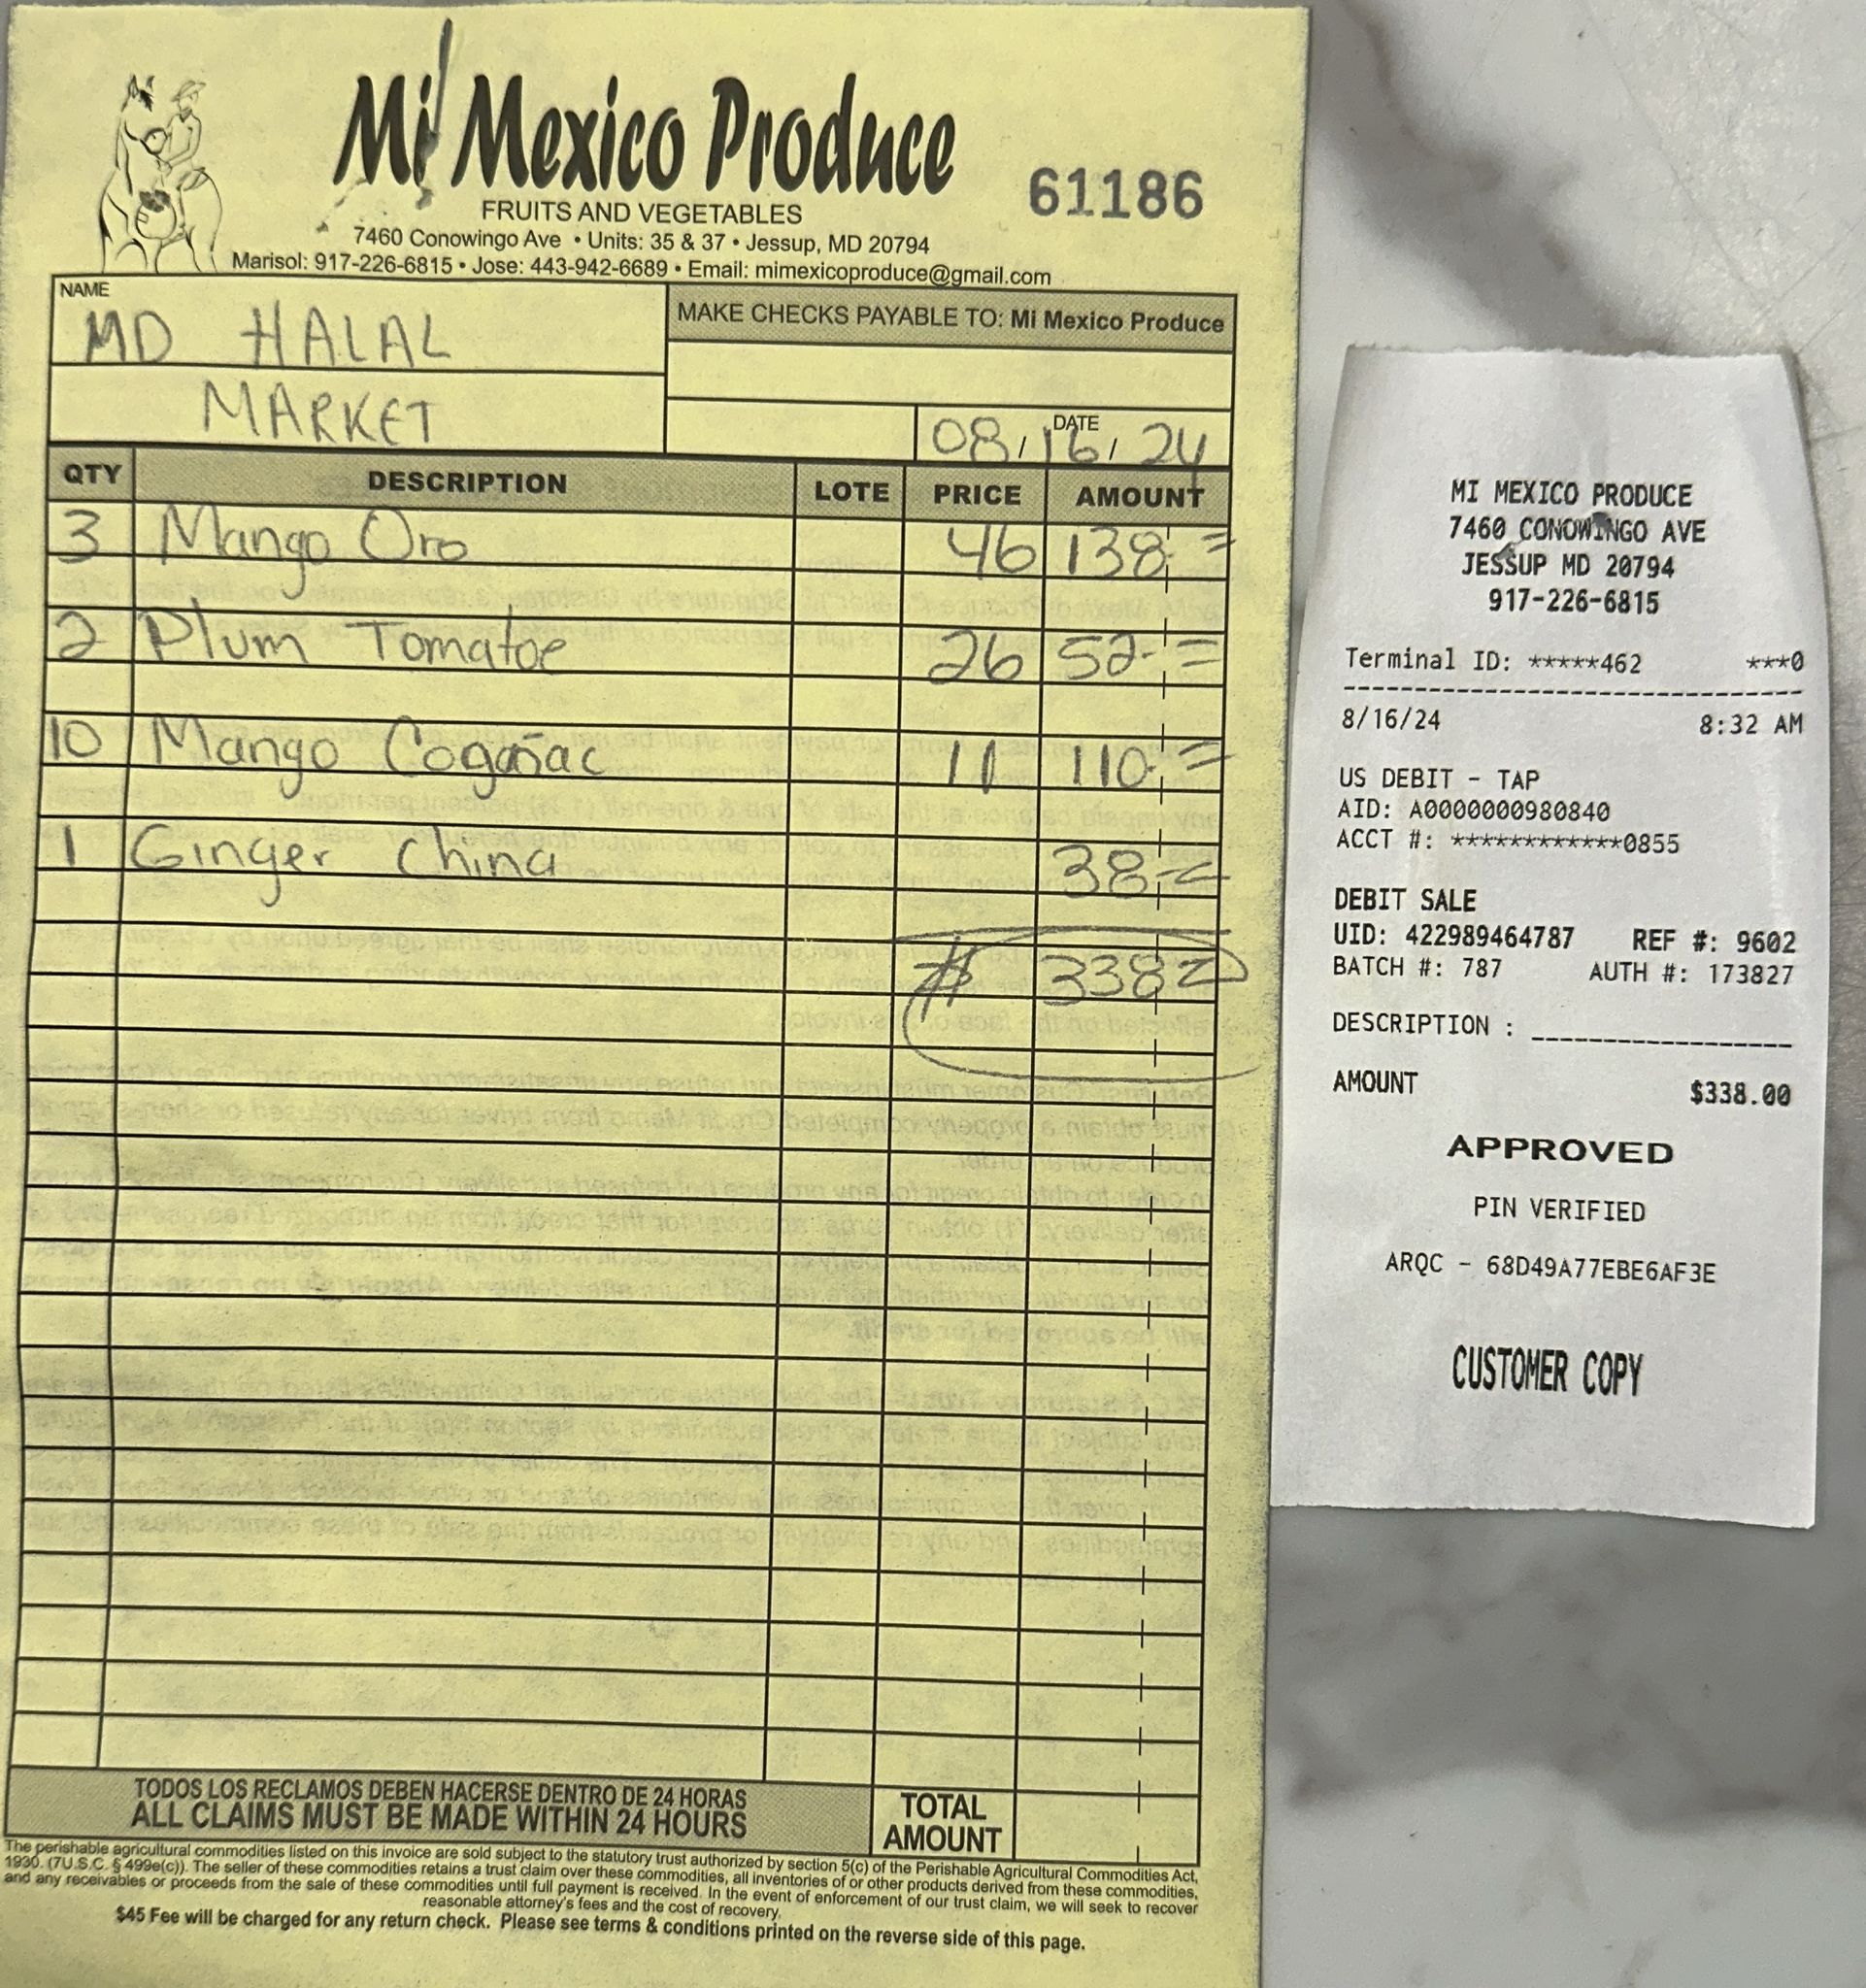 Mi Mexico Produce
61186
FRUITS AND VEGETABLES
7460 Conowingo Ave • Units: 35 & 37 • Jessup, MD 20794
Marisol: 917-226-6815 • Jose: 443-942-6689 • Email: mimexicoproduce@gmail.com
NAME
MD HALAL
MARKET
MAKE CHECKS PAYABLE TO: Mi Mexico Produce
DATE
08/16/24
QTY DESCRIPTION LOTE PRICE AMOUNT
3 Mango Oro 46 138 =
2 Plum Tomatoe 26 52 =
10 Mango Cogoñac 11 110 =
1 Ginger China 38 =
$ 338 =
TODOS LOS RECLAMOS DEBEN HACERSE DENTRO DE 24 HORAS
ALL CLAIMS MUST BE MADE WITHIN 24 HOURS
TOTAL
AMOUNT
The perishable agricultural commodities listed on this invoice are sold subject to the statutory trust authorized by section 5(c) of the Perishable Agricultural Commodities Act,
1930. (7U.S.C. § 499e(c)). The seller of these commodities retains a trust claim over these commodities, all inventories of or other products derived from these commodities,
and any receivables or proceeds from the sale of these commodities until full payment is received. In the event of enforcement of our trust claim, we will seek to recover
reasonable attorney's fees and the cost of recovery.
$45 Fee will be charged for any return check. Please see terms & conditions printed on the reverse side of this page.
MI MEXICO PRODUCE
7460 CONOWINGO AVE
JESSUP MD 20794
917-226-6815
Terminal ID: *****462 ***0
8/16/24 8:32 AM
US DEBIT - TAP
AID: A0000000980840
ACCT #: ************0855
DEBIT SALE
UID: 422989464787 REF #: 9602
BATCH #: 787 AUTH #: 173827
DESCRIPTION :
AMOUNT $338.00
APPROVED
PIN VERIFIED
ARQC - 68D49A77EBE6AF3E
CUSTOMER COPY